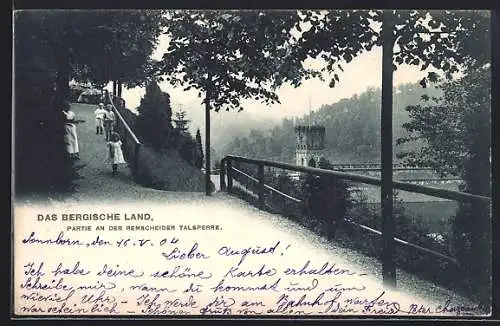 DAS BERGISCHE LAND,
PARTIE AN DER REMSCHEIDER TALSPERRE.
Sonnborn, den 15. V. 04
Lieber August!
Ich habe deine schöne Karte erhalten -
Schreibe mir, wann du kommst und um
wieviel Uhr - Ich werde dir am Bahnhof warten
wahrscheinlich - Schönen Gruß von allen, dein Freund Peter